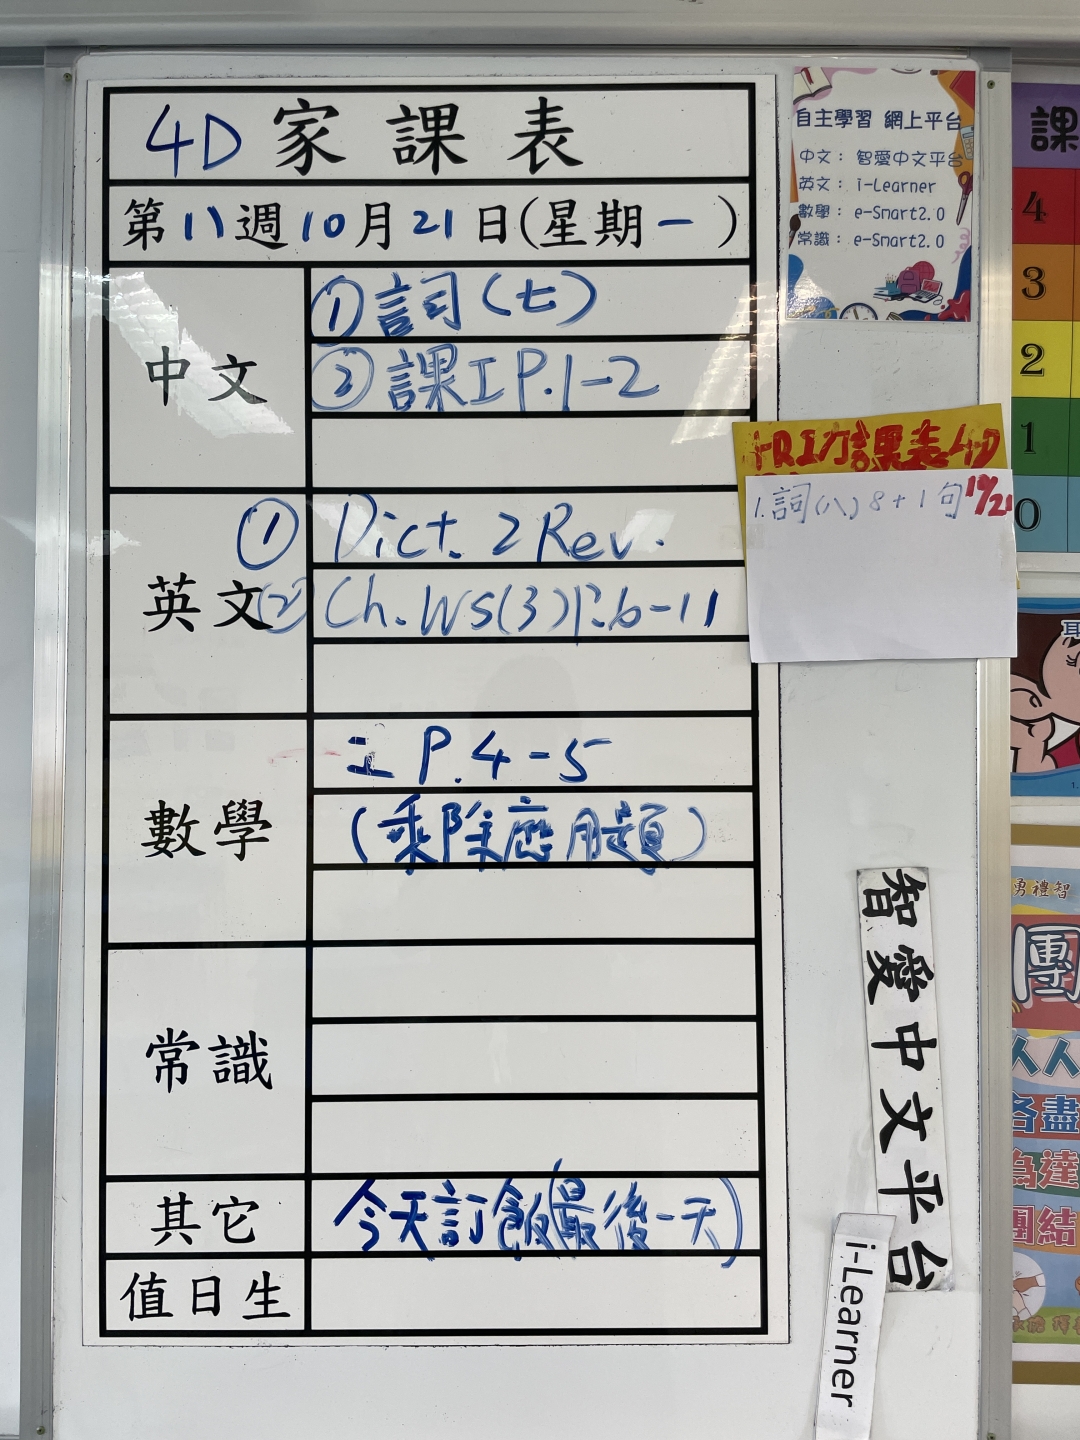 4D 家課表
第 11 週 10 月 21 日(星期一)
中文
① 詞(七)
② 課工 P.1-2
英文
① Dict. 2 Rev.
② Ch. WS(3) P.6-11
數學
工 P.4-5
(乘除應用題)
常識
其它
今天訂飯(最後一天)
值日生
自主學習 網上平台
中文： 智愛中文平台
英文： i-Learner
數學： e-Smart2.0
常識： e-Smart2.0
課表4D
1. 詞(八) 8+1句
10/21
智愛中文平台
i-Learner
課
4
3
2
1
0
勇禮智
團
人人
各盡
為達
團結